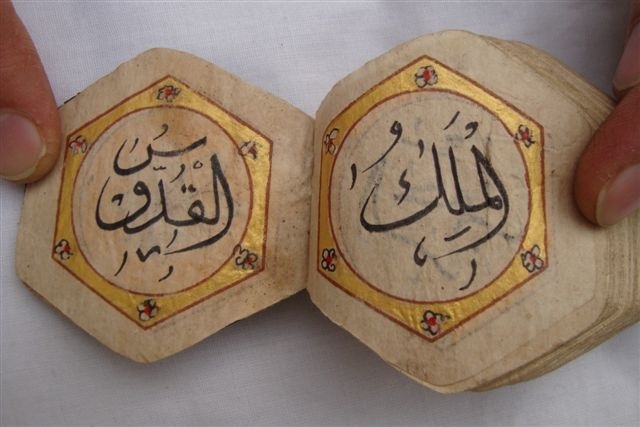 الْمَلِكُ
الْقُدُّوسُ